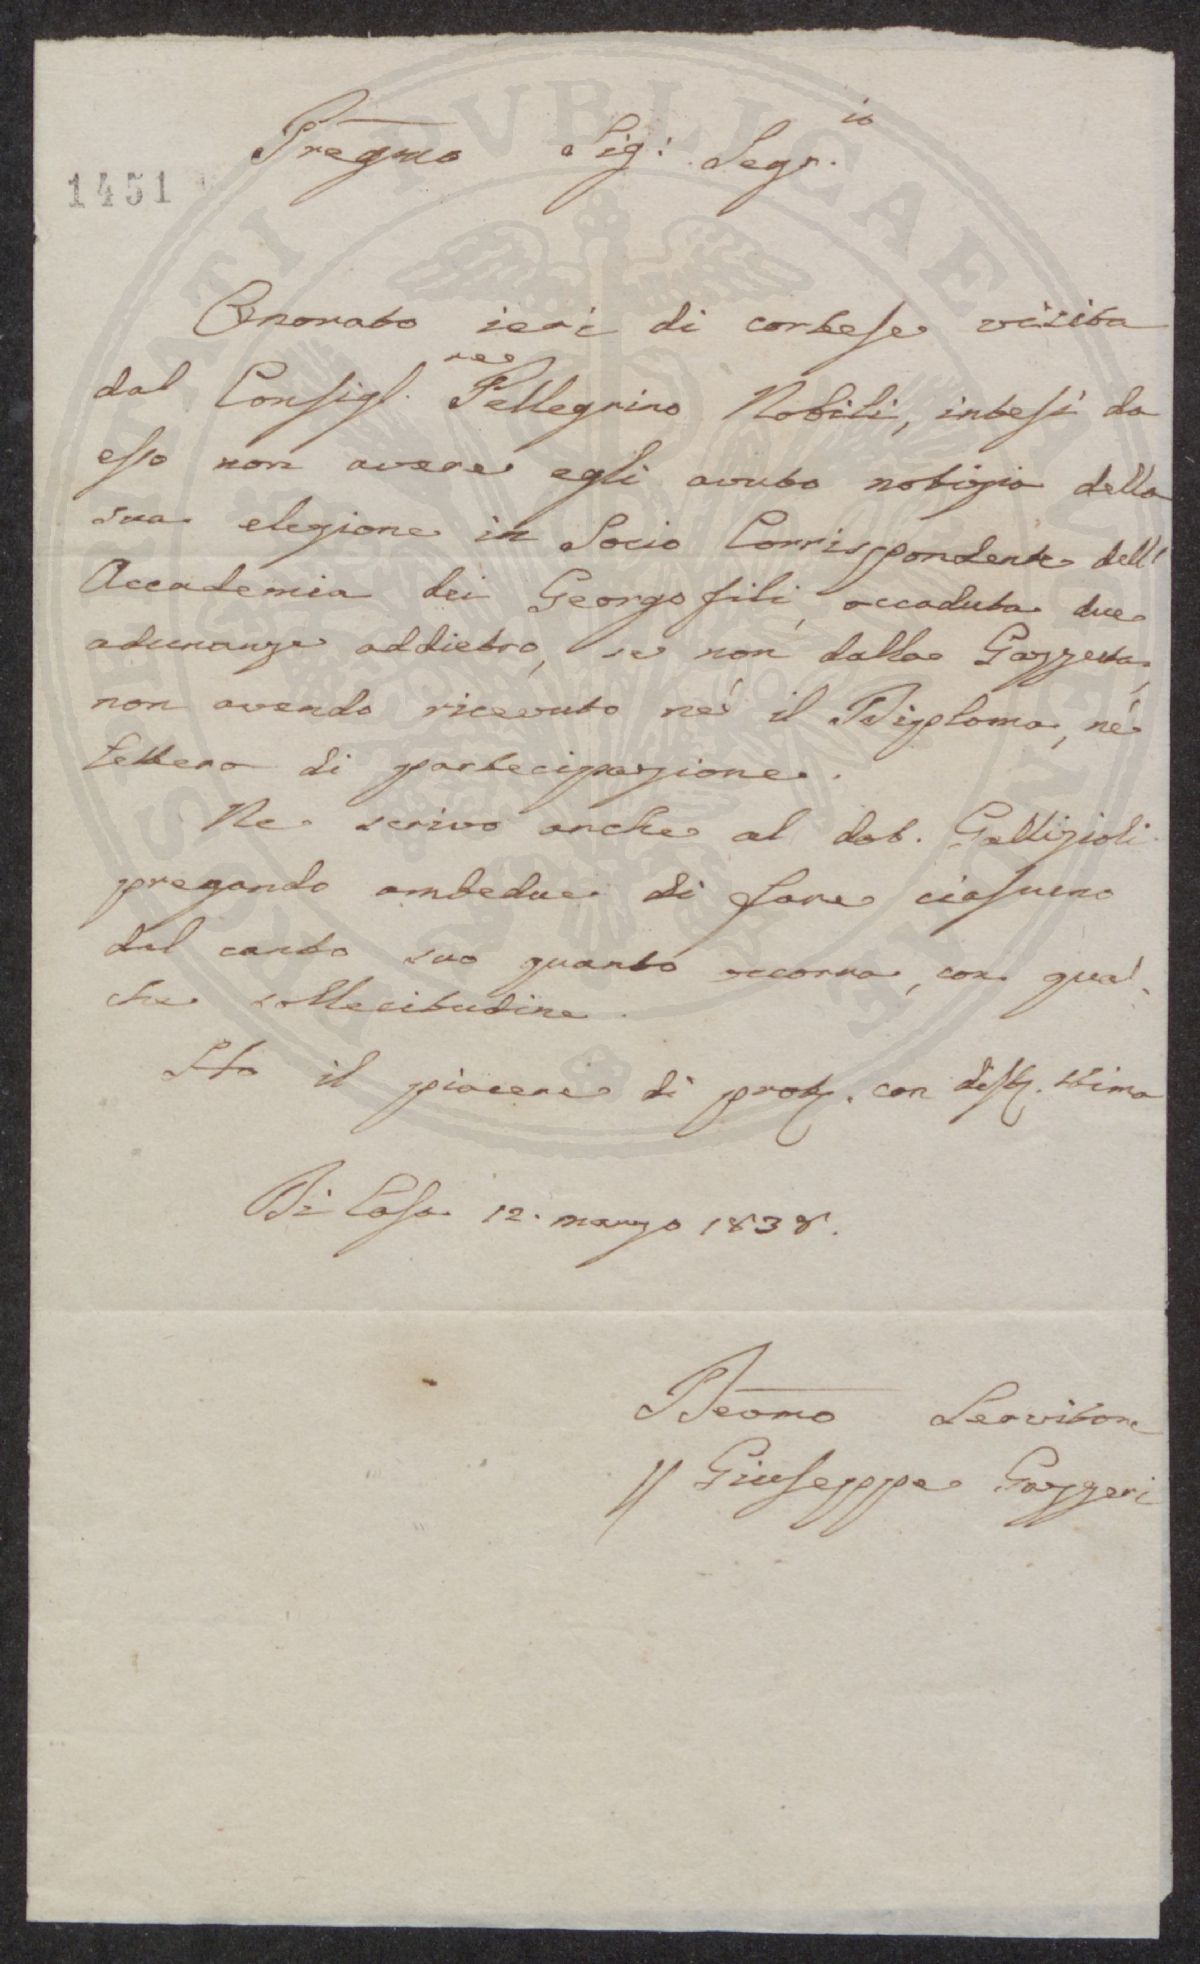 1451
Pregmo Sig: Segr.io
Onorato ieri di cortese visita
dal Consigl.re Pellegrino Nobili, intesi da
esso non avere egli avuto notizia della
sua elezione in Socio Corrispondente dell'
Accademia dei Georgofili, accaduta due
adunanze addietro, se non dalla Gazzetta,
non avendo ricevuto né il Diploma, né
lettera di partecipazione.
Ne scrivo anche al dot. Gallizioli
pregando ambedue di fare ciascuno
dal canto suo quanto occorra, con qual-
che sollecitudine.
Ho il piacere di prot. con dist. stima
Di Casa 12. marzo 1838.
Devmo Servitore
Giuseppe Gazzeri
VNIVERSITATI PVBLICAE